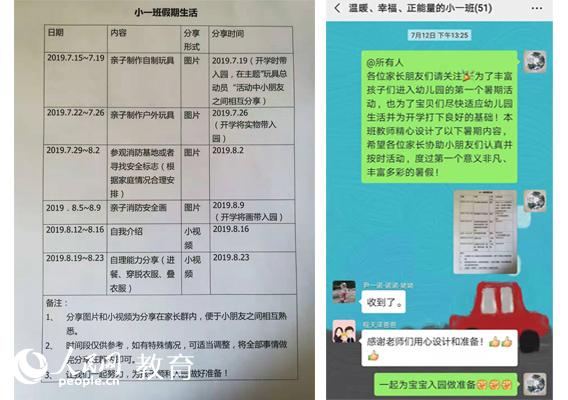 小一班假期生活
日期 内容 分享形式 分享时间
2019.7.15~7.19 亲子制作自制玩具 图片 2019.7.19（开学时带入园，在主题“玩具总动员“活动中小朋友之间相互分享）
2019.7.22~7.26 亲子制作户外玩具 图片 2019.7.26（开学将实物带入园）
2019.7.29~8.2 参观消防基地或者寻找安全标志（根据家庭情况合理安排） 图片 2019.8.2
2019．8.5~8.9 亲子消防安全画 图片 2019.8.9（开学将画带入园）
2019.8.12~8.16 自我介绍 小视频 2019.8.16
2019.8.19~8.23 自理能力分享（进餐、穿脱衣服、叠衣服） 小视频 2019.8.23
备注：
1、 分享图片和小视频为分享在家长群内，便于小朋友之间相互熟
悉。
2、 时间段仅供参考，如有特殊情况，可适当调整，将全部事情做
3、 让我们一起努力，为
做好准备！
人民网 教育
people.cn
温暖、幸福、正能量的小一班(51)
7月12日 下午13:25
@所有人
各位家长朋友们请关注🎉为了丰富
孩子们进入幼儿园的第一个暑期活
动，也为了宝贝们尽快适应幼儿园
生活并为开学打下良好的基础！本
班教师精心设计了以下暑期内容，
希望各位家长协助小朋友们认真并
按时活动，度过第一个意义非凡、
丰富多彩的暑假！
收到了。
感谢老师们用心设计和准备！👍👍
👍
一起为宝宝入园做准备